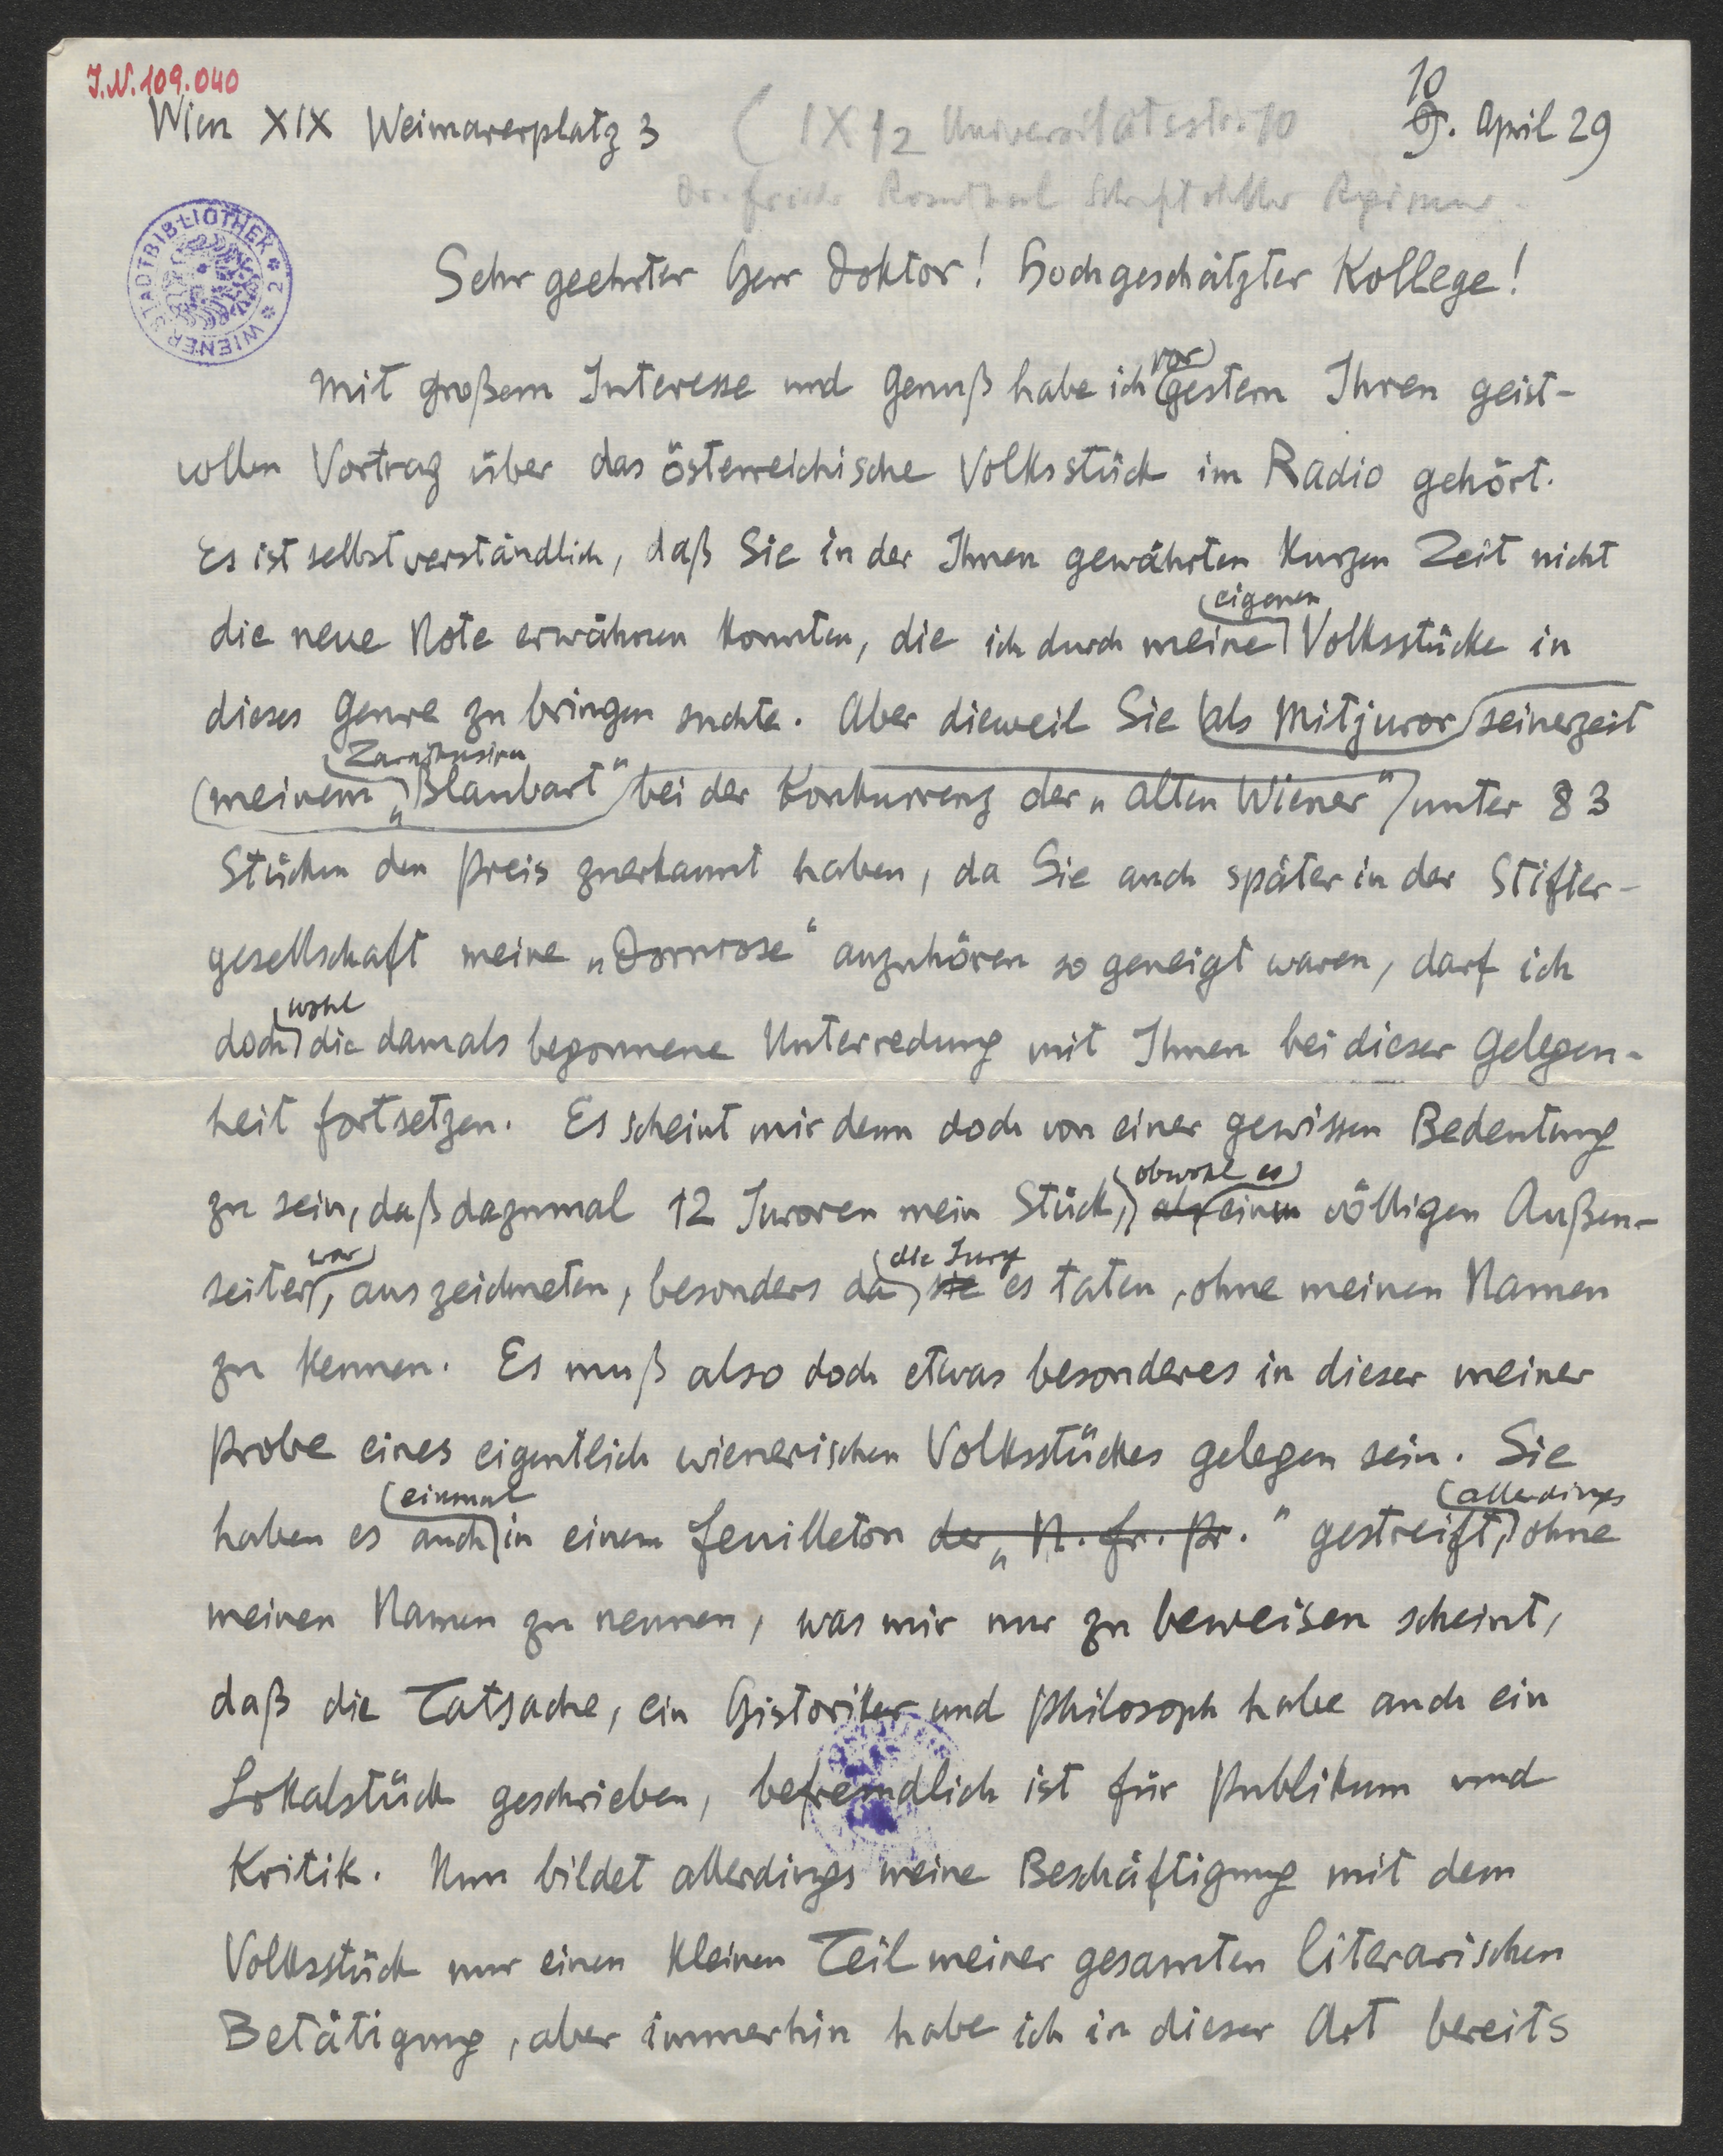 I.N.109.040
Wien XIX Weimarerplatz 3 (IX/2 Universitätsstr. 10 10
9. April 29
Dr. Friedr. Rosenthal Schriftsteller
WIENER STADTBIBLIOTHEK * 2 *
Sehr geehrter Herr Doktor! Hochgeschätzter Kollege!
Mit großem Interesse und Genuß habe ich vorgestern Ihren geist-
vollen Vortrag über das österreichische Volksstück im Radio gehört.
Es ist selbstverständlich, daß Sie in der Ihnen gewährten kurzen Zeit nicht
eigenen
die neue Note erwähnen konnten, die ich durch meine Volksstücke in
dieses Genre zu bringen suchte. Aber dieweil Sie als Mitjuror seinerzeit
meinem „Blaubart" bei der Konkurrenz der „Alten Wiener" unter 83
Stücken den Preis zuerkannt haben, da Sie auch später in der Stifter-
gesellschaft meine „Dornrose" anzuhören so geneigt waren, darf ich
wohl
doch die damals begonnene Unterredung mit Ihnen bei dieser Gelegen-
heit fortsetzen. Es scheint mir denn doch von einer gewissen Bedeutung
obwohl es
zu sein, daß dazumal 12 Juroren mein Stück, als einem völligen Außen-
war die Jury
seiter, auszeichneten, besonders da sie es taten, ohne meinen Namen
zu kennen. Es muß also doch etwas besonderes in dieser meiner
Probe eines eigentlich wienerischen Volksstückes gelegen sein. Sie
einmal allerdings
haben es auch in einem Feuilleton der „N. fr. Pr." gestreift, ohne
meinen Namen zu nennen, was mir nur zu beweisen scheint,
daß die Tatsache, ein Historiker und Philosoph habe auch ein
Lokalstück geschrieben, befremdlich ist für Publikum und
Kritik. Nun bildet allerdings meine Beschäftigung mit dem
Volksstück nur einen kleinen Teil meiner gesamten literarischen
Betätigung, aber immerhin habe ich in dieser Art bereits